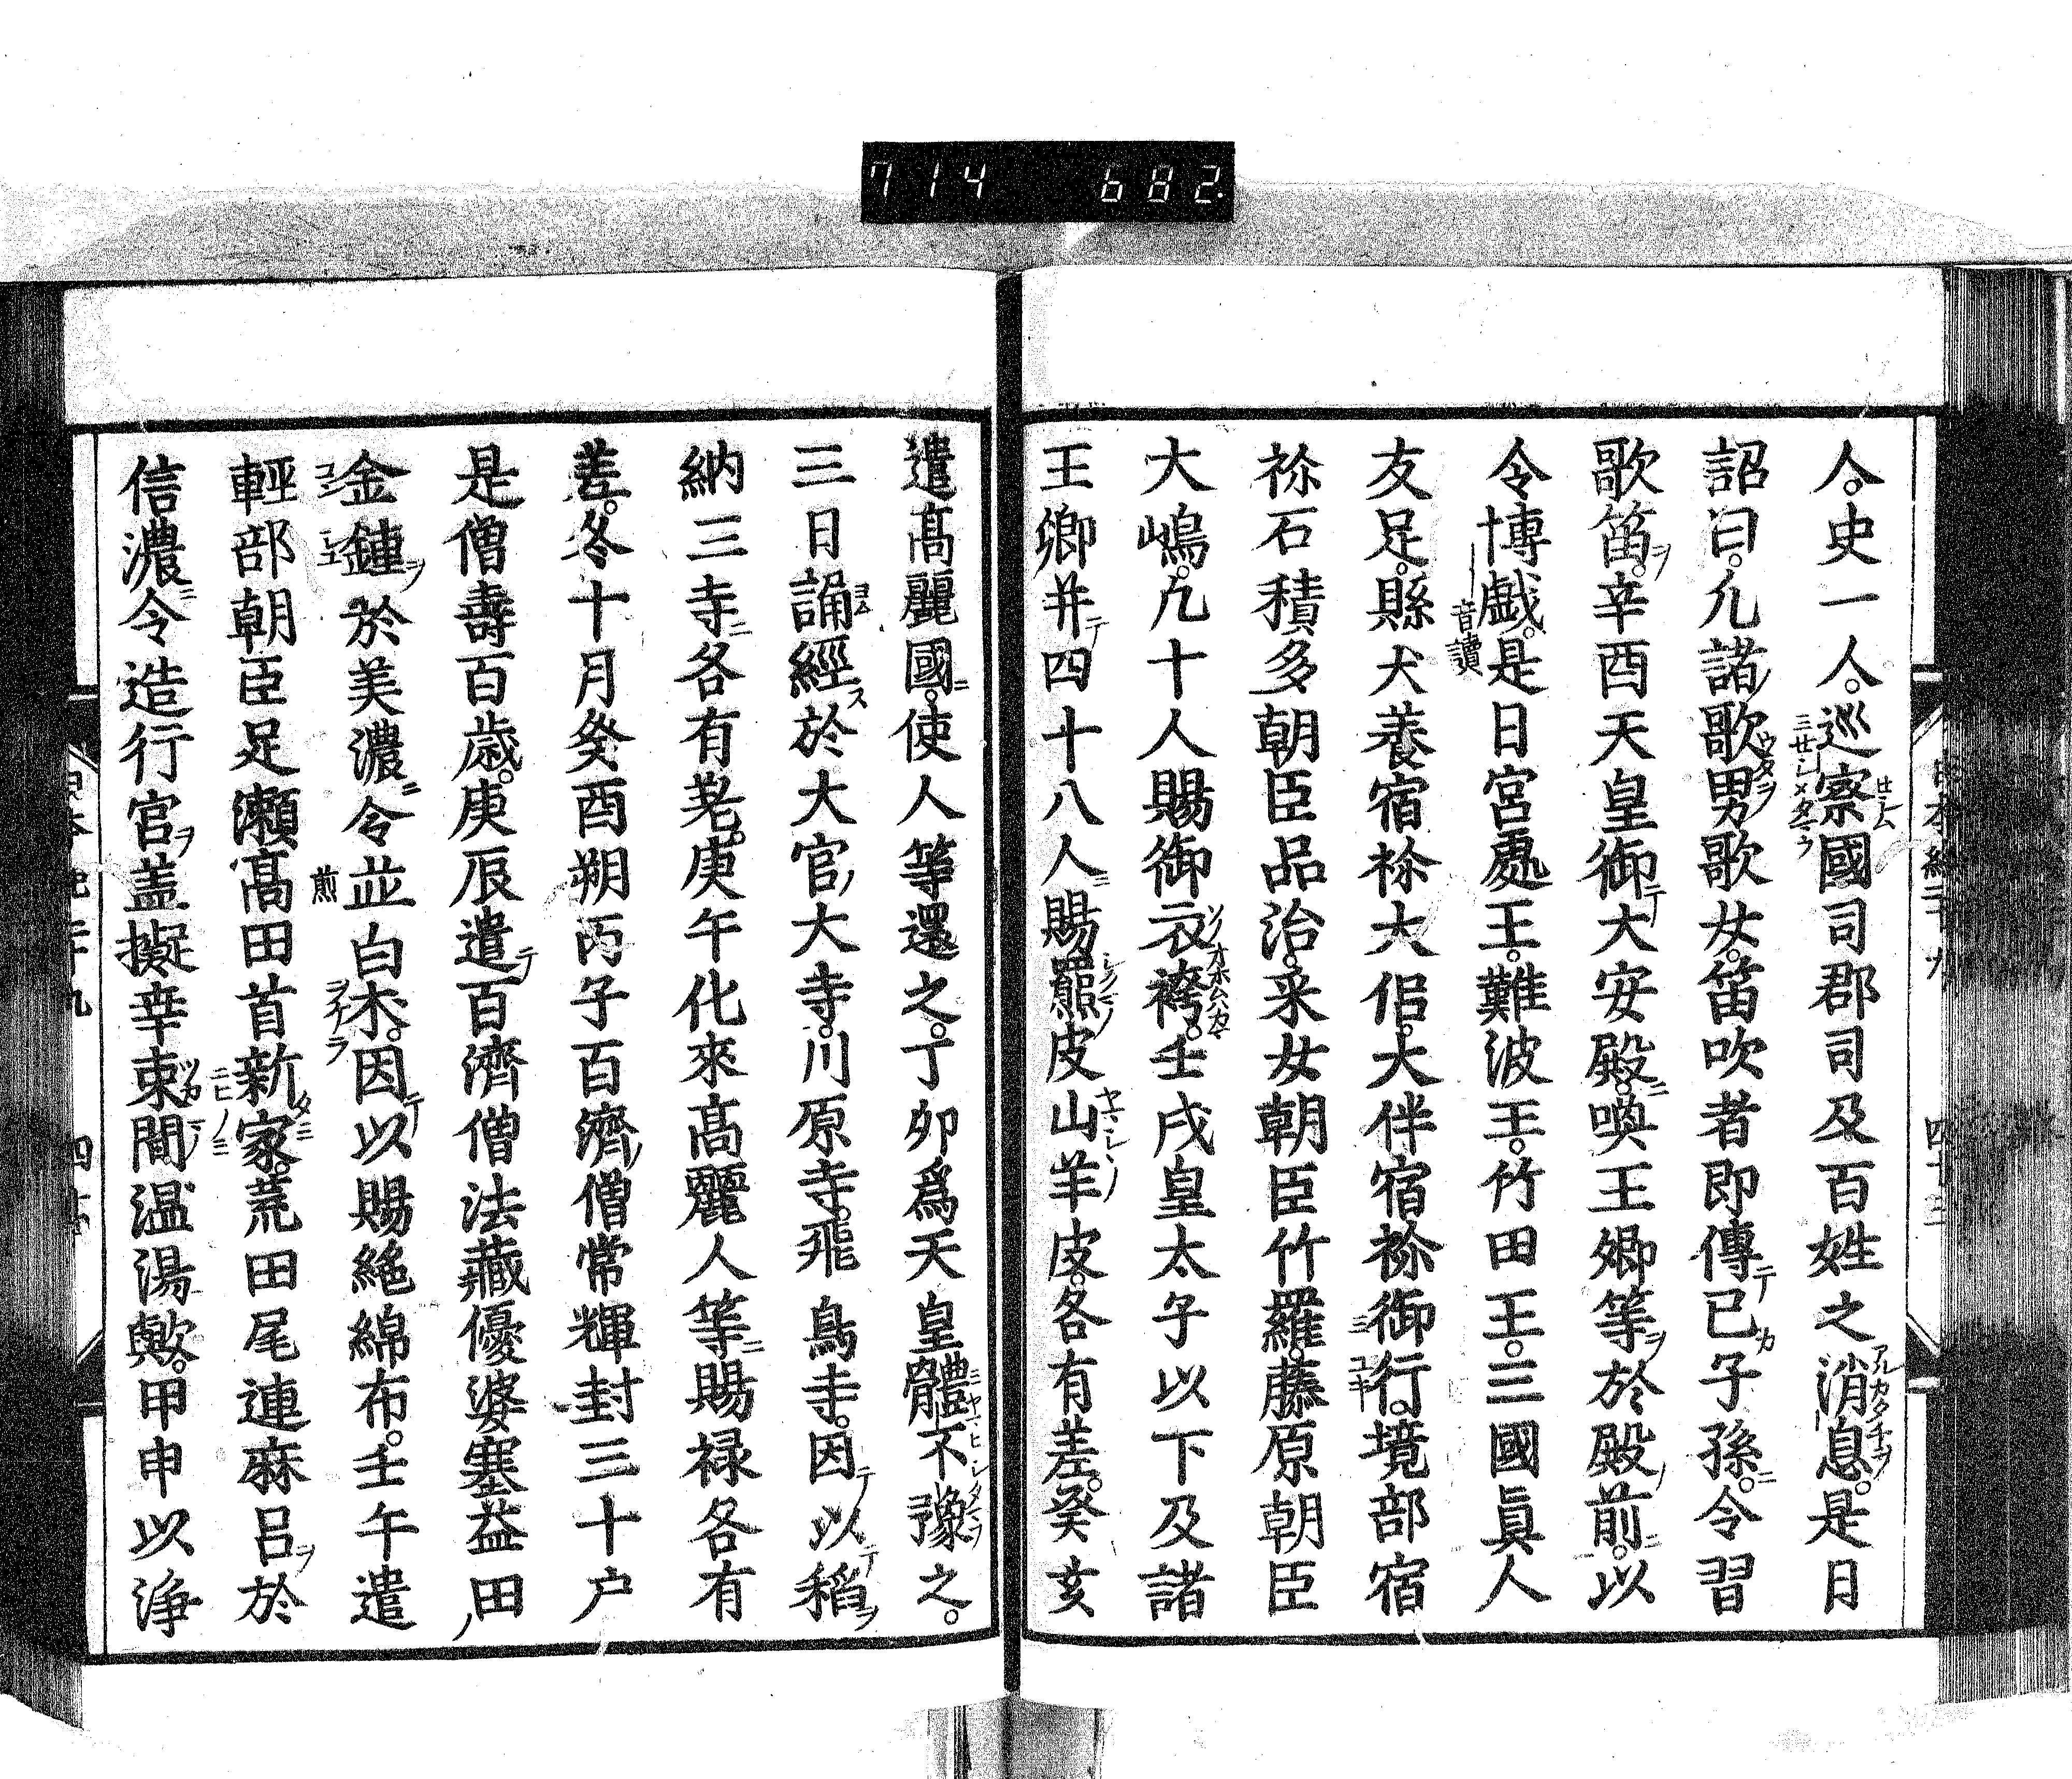 714 682.
人。史一人。巡察國司郡司及百姓之消息。是日
詔曰。凡諸歌男歌女。笛吹者即傳已子孫。令習
歌笛。辛酉天皇御大安殿。喚王卿等於殿前。以
令博戲。是日宮處王。難波王。竹田王。三國眞人
友足。縣犬養宿祢大侶。大伴宿祢御行。境部宿
祢石積多朝臣品治。采女朝臣竹羅。藤原朝臣
大嶋。凡十人賜御衣袴。壬戌皇太子以下及諸
王卿并四十八人賜羆皮山羊皮。各有差。癸亥
遣髙麗國。使人等還之。丁卯爲天皇體不豫之。
三日誦經於大官大寺。川原寺。飛鳥寺。因以稻
納三寺各有差。庚午化來髙麗人等賜禄各有
差。冬十月癸酉朔丙子百濟僧常輝封三十户
是僧壽百歳。庚辰遣百濟僧法藏優婆塞益田
金鍾於美濃令並白朮。因以賜絁綿布。壬午遣
輕部朝臣足瀬髙田首新家。荒田尾連麻呂於
信濃令造行官盖擬幸束間温湯歟。甲申以浄